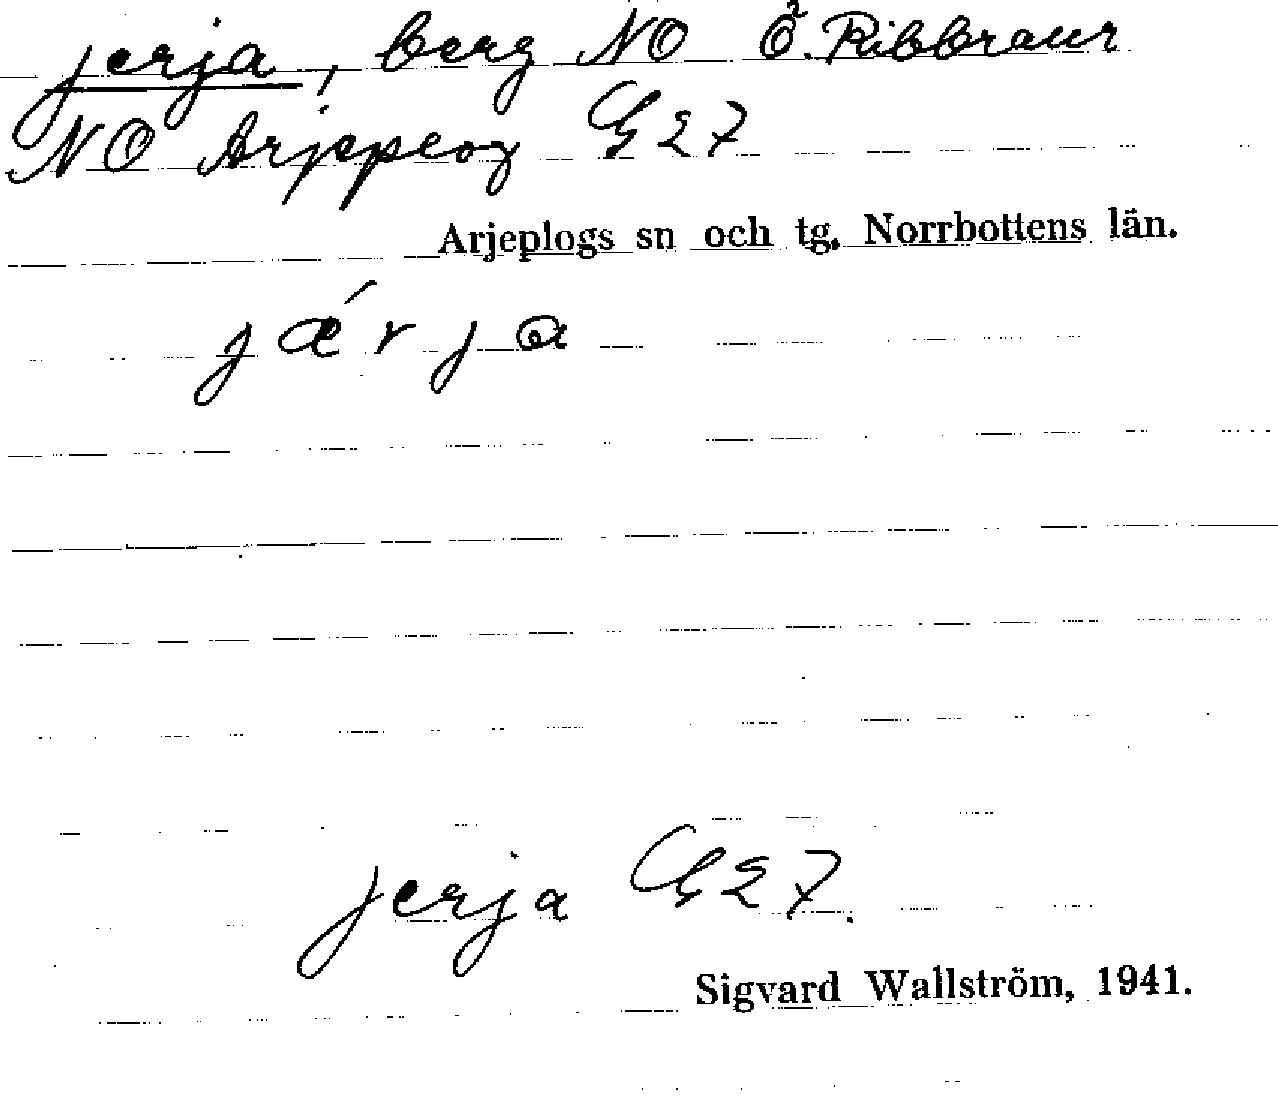 Jerja, berg NO Ö. Ribbraur
NO Arjeplog G27
Arjeplogs sn och tg. Norrbottens län.
jǽrja
Jerja G27.
Sigvard Wallström, 1941.